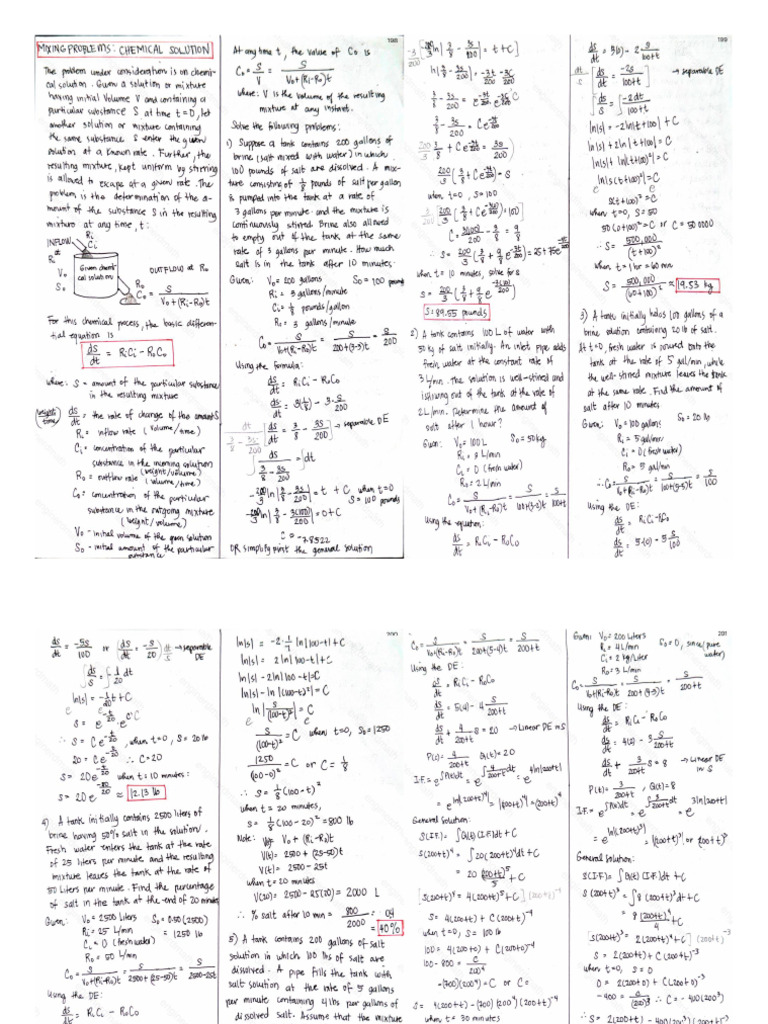 198
MIXING PROBLEMS: CHEMICAL SOLUTION
The problem under consideration is on chemi-
cal solution. Given a solution or mixture
having initial volume V and containing a
particular substance S at time t=0, let
another solution or mixture containing
the same substance S enter the given
solution at a known rate. Further, the
resulting mixture, kept uniform by stirring
is allowed to escape at a given rate. The
problem is the determination of the a-
mount of the substance S in the resulting
mixture at any time, t:
INFLOW
Ri
Ci
Vo
So
Given chemi-
cal solution
OUTFLOW at Ro
Co = S / Vo+(Ri-Ro)t
For this chemical process, the basic differen-
tial equation is
ds/dt = RiCi - RoCo
where: S = amount of the particular substance
in the resulting mixture
(weight/time) ds/dt = the rate of change of the amount S
Ri = inflow rate (volume/time)
Ci = concentration of the particular
substance in the incoming solution
(weight/volume)
Ro = outflow rate (volume/time)
Co = concentration of the particular
substance in the outgoing mixture
(weight/volume)
Vo - initial volume of the given solution
So - initial amount of the particular
substance
At any time t, the value of Co is
Co = S/V = S / Vo+(Ri-Ro)t
where: V is the volume of the resulting
mixture at any instant.
Solve the following problems:
1) Suppose a tank contains 200 gallons of
brine (salt mixed with water) in which
100 pounds of salt are dissolved. A mix-
ture consisting of 1/8 pounds of salt per gallon
is pumped into the tank at a rate of
3 gallons per minute and the mixture is
continuously stirred. Brine also allowed
to empty out of the tank at the same
rate of 3 gallons per minute. How much
salt is in the tank after 10 minutes.
Given: Vo = 200 gallons So = 100 pounds
Ri = 3 gallons/minute
Ci = 1/8 pounds/gallon
Ro = 3 gallons/minute
Co = S / Vo+(Ri-Ro)t = S / 200+(3-3)t = S/200
Using the formula:
ds/dt = RiCi - RoCo
ds/dt = 3(1/8) - 3 S/200
[ds/dt = 3/8 - 3S/200] → separable DE
∫ ds / 3/8 - 3S/200 = ∫dt
-200/3 ln|3/8 - 3S/200| = t + C when t=0 S=100 pounds
-200/3 ln|3/8 - 3(100)/200| = 0+C
C =
OR simplify first the general solution
199
[-200/3 ln|3/8 - 3S/200| = t + C]
ln|3/8 - 3S/200| = -3t/200 - 3C/200
when t=0, S=100
when t = 10 minutes, solve for S
S = 89.55 pounds
2) A tank contains 100 L of water with
50 kg of salt initially. An inlet pipe adds
fresh water at the constant rate of
3 L/min. The solution is well-stirred and
is flowing out of the tank at the rate of
2 L/min. Determine the amount of
salt after 1 hour?
Given: Vo = 100 L So = 50 kg
Ri = 3 L/min
Ci = 0 (fresh water)
Ro = 2 L/min
Co = S / Vo+(Ri-Ro)t = S / 100+(3-2)t = S / 100+t
Using the equation:
ds/dt = RiCi - RoCo
ds/dt = 3(0) - 2 S/100+t
[ds/dt = -2S/100+t] → separable DE
∫ ds/S = ∫ -2dt/100+t
ln|s| = -2ln|t+100| + C
ln|s| + 2ln|t+100| = C
ln|s| + ln|(t+100)²| = C
ln|s(t+100)²| = C
s(t+100)² = C
when t=0, S=50
50(0+100)² = C or C = 500000
∴ S = 500,000 / (t+100)²
when t = 1 hr = 60 min
S = 500,000 / (60+100)² ≈ 19.53 kg
3) A tank initially holds 100 gallons of a
brine solution containing 20 lb of salt.
At t=0, fresh water is poured into the
tank at the rate of 5 gal/min, while
the well-stirred mixture leaves the tank
at the same rate. Find the amount of
salt after 10 minutes
Given: Vo = 100 gallons So = 20 lb
Ri = 5 gal/min
Ci = 0 (fresh water)
Ro = 5 gal/min
∴ Co = S / Vo+(Ri-Ro)t = S / 100+(5-5)t = S/100
Using the DE:
ds/dt = RiCi - RoCo
ds/dt = 5(0) - 5 S/100
200
ds/dt = -5S/100 or (ds/dt = -S/20) dt/S → separable DE
∫ ds/S = ∫ -1/20 dt
ln|s| = -1/20 t + C
∴ S = Ce^(-t/20), when t=0, S = 20 lb
∴ C=20
when t = 10 minutes:
≈ 12.13 lb
4) A tank initially contains 2500 liters of
brine having 50% salt in the solution.
Fresh water enters the tank at the rate
of 25 liters per minute and the resulting
mixture leaves the tank at the rate of
50 liters per minute. Find the percentage
of salt in the tank at the end of 20 minutes
Given: Vo = 2500 liters So = 0.50(2500)
Ri = 25 L/min = 1250 lb
Ci = 0 (fresh water)
Ro = 50 L/min
Co = S / Vo+(Ri-Ro)t = S / 2500+(25-50)t = S / 2500-25t
Using the DE:
ds/dt = RiCi - RoCo
ln|s| = 2ln|100-t| + C
ln|s| - 2ln|100-t| = C
ln|s| - ln|(100-t)²| = C
ln|S/(100-t)²| = C
S/(100-t)² = C when t=0, So=1250
1250/(100-0)² = C or C = 1/8
∴ S = 1/8(100-t)²
when t = 20 minutes,
S = 1/8(100-20)² = 800 lb
Note: V = Vo + (Ri-Ro)t
V(t) = 2500 + (25-50)t
V(t) = 2500 - 25t
when t=20 minutes
V(20) = 2500 - 25(20) = 2000 L
∴ % salt after 10 min = 800/2000 = 0.4
= 40%
5) A tank contains 200 gallons of salt
solution in which 100 lbs of salt are
dissolved. A pipe fills the tank with
salt solution at the rate of 5 gallons
per minute containing 4 lbs per gallons of
dissolved salt. Assume that the mixture
201
Co = S / Vo+(Ri-Ro)t = S / 200+(5-4)t = S / 200+t
Using the DE:
ds/dt = RiCi - RoCo
ds/dt = 5(4) - 4 S/200+t
ds/dt + 4/200+t S = 20 → Linear DE in S
P(t) = 4/200+t Q(t) = 20
General Solution:
S(I.F.) = ∫Q(t)(I.F.)dt + C
S(200+t)⁴ = ∫20(200+t)⁴dt + C
= 20 (200+t)⁵/5 + C
[S(200+t)⁴ = 4(200+t)⁵ + C] (200+t)⁻⁴
S = 4(200+t) + C(200+t)⁻⁴
when t=0, S = 100 lb
100 = 4(200+0) + C(200+0)⁻⁴
100 - 800 = C/200⁴
-(700)(200⁴) = C or C =
S = 4(200+t) - (700)(200⁴)(200+t)⁻⁴
when t = 30 minutes
Given: Vo = 200 Liters
Ri = 4 L/min So = 0, since (pure water)
Ci = 2 kg/Liter
Ro = 3 L/min
Co = S / Vo+(Ri-Ro)t = S / 200+(4-3)t = S / 200+t
Using the DE:
ds/dt = RiCi - RoCo
ds/dt = 4(2) - 3 S/200+t
ds/dt + 3/200+t S = 8 → Linear DE in S
P(t) = 3/200+t, Q(t) = 8
General Solution:
S(I.F.) = ∫Q(t)(I.F.)dt + C
S(200+t)³ = ∫8(200+t)³dt + C
= 8(200+t)⁴/4 + C
[S(200+t)³ = 2(200+t)⁴ + C] (200+t)⁻³
S = 2(200+t) + C(200+t)⁻³
when t=0, S=0
0 = 2(200+0) + C(200+0)⁻³
-400 = C/(200)³ ∴ C = -400(200³)
S = 2(200+t) - 400(200³)(200+t)⁻³